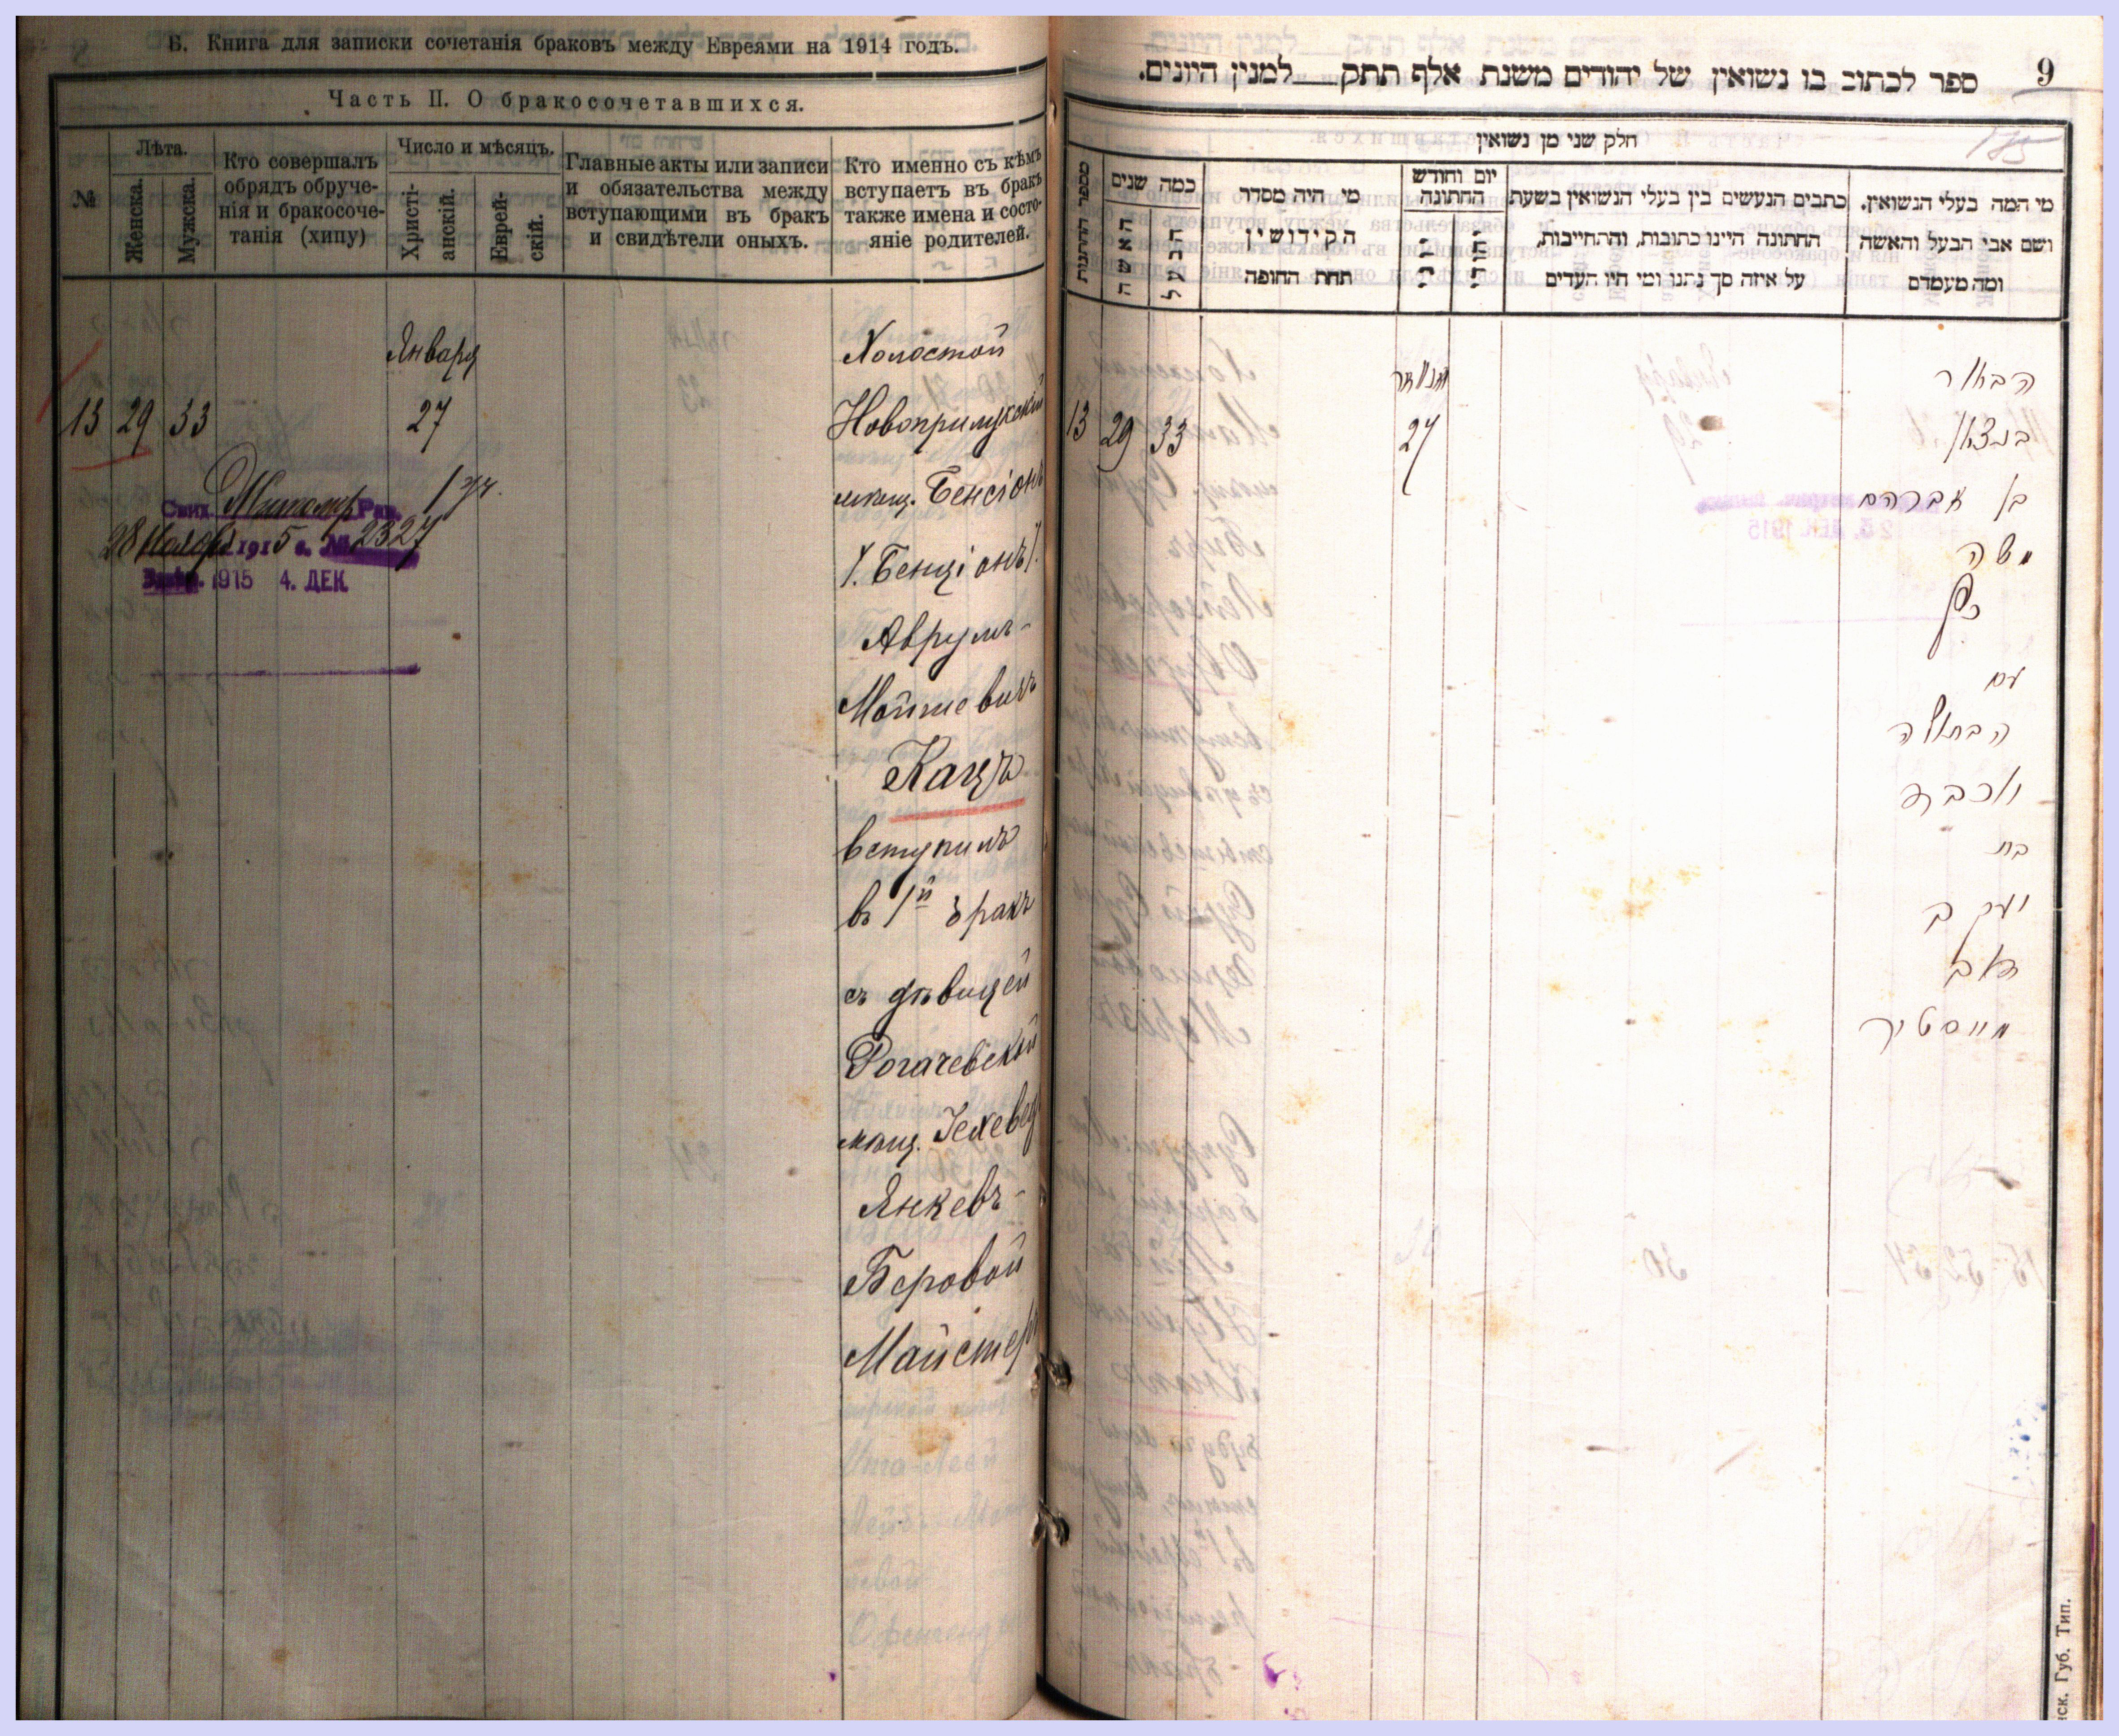 Б. Книга для записки сочетанія браковъ между Евреями на 1914 годъ.
Часть II. О бракосочетавшихся.
№
Лѣта.
Женска.
Мужска.
Кто совершалъ
обрядъ обруче-
нія и бракосоче-
танія (хипу)
Число и мѣсяцъ.
Христі-
анскій.
Еврей-
скій.
Главные акты или записи
и обязательства между
вступающими въ бракъ
и свидѣтели оныхъ.
Кто именно съ кѣмъ
вступаетъ въ бракъ
также имена и состо-
яніе родителей.
Января
13 29 33 27
Холостой
Новоприлукскій
мѣщ. Бенсіонъ
/. Бенціонъ/.
Аврумъ-
Мошковичъ
Кацъ
вступилъ
въ 1й бракъ
съ дѣвицей
Рогачевской
мѣщ. Іехевед
Янкевъ-
Беровой
Майстеръ
Свид. Житомир Рав.
28 Ноября 1915 г. № 2327
1915 4. ДЕК.
9
ספר לכתוב בו נשואין של יהודים משנת אלף תתק___למנין היונים.
חלק שני מן נשואין
מספר החתונות
כמה שנים
האשה
הבעל
מי היה מסדר
הקידושין
תחת החופה
יום וחודש
החתונה
כתבים הנעשים בין בעלי הנשואין בשעת
החתונה היינו כתובות, והתחייבות,
על איזה סך נתנו ומי היו העדים
מי המה בעלי הנשואין.
ושם אבי הבעל והאשה
ומה מעמדם
ינואר
13 29 33 27
הבחור
בנציון
בן אברהם
משה
כץ
עם
הבתולה
יוכבד
בת
יעקב
דוב
מייסטיר
нск. Губ. Тип.